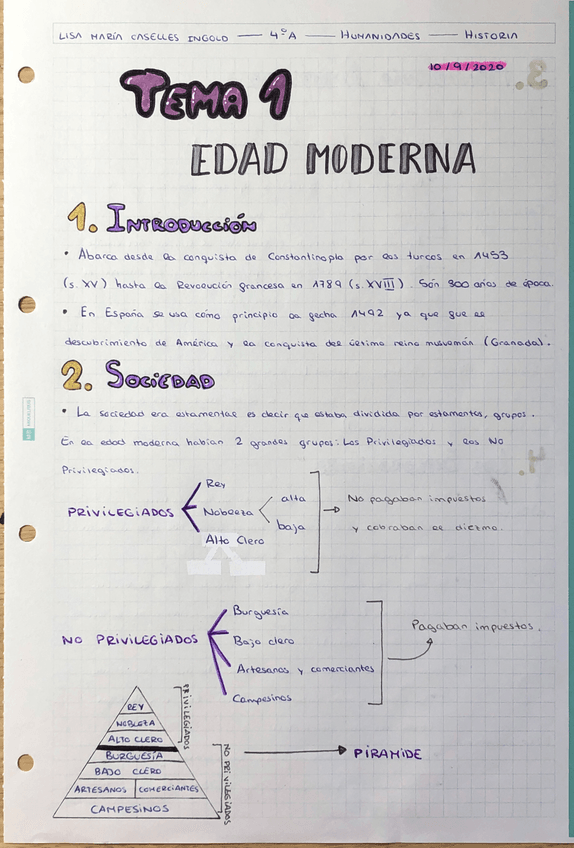 LISA MARÍA CASELLES INGOLD — 4ºA — HUMANIDADES — HISTORIA
10/9/2020
TEMA 1
EDAD MODERNA
1. INTRODUCCIÓN
• Abarca desde la conquista de Constantinopla por los turcos en 1453
(s. XV) hasta la Revolución francesa en 1789 (s. XVIII). Són 300 años de época.
• En España se usa como principio la fecha 1492 ya que fue el
descubrimiento de América y la conquista del último reino musulmán (Granada).
2. SOCIEDAD
• La sociedad era estamental es decir que estaba dividida por estamentos, grupos.
En la edad moderna habían 2 grandes grupos: Los Privilegiados y los No
Privilegiados.
PRIVILEGIADOS
Rey
Nobleza
alta
baja
Alto Clero
No pagaban impuestos
y cobraban el diezmo.
NO PRIVILEGIADOS
Burguesía
Bajo clero
Artesanos y comerciantes
Campesinos
Pagaban impuestos.
REY
NOBLEZA
ALTO CLERO
BURGUESÍA
BAJO CLERO
ARTESANOS COMERCIANTES
CAMPESINOS
PRIVILEGIADOS
NO PRIVILEGIADOS
PIRÁMIDE